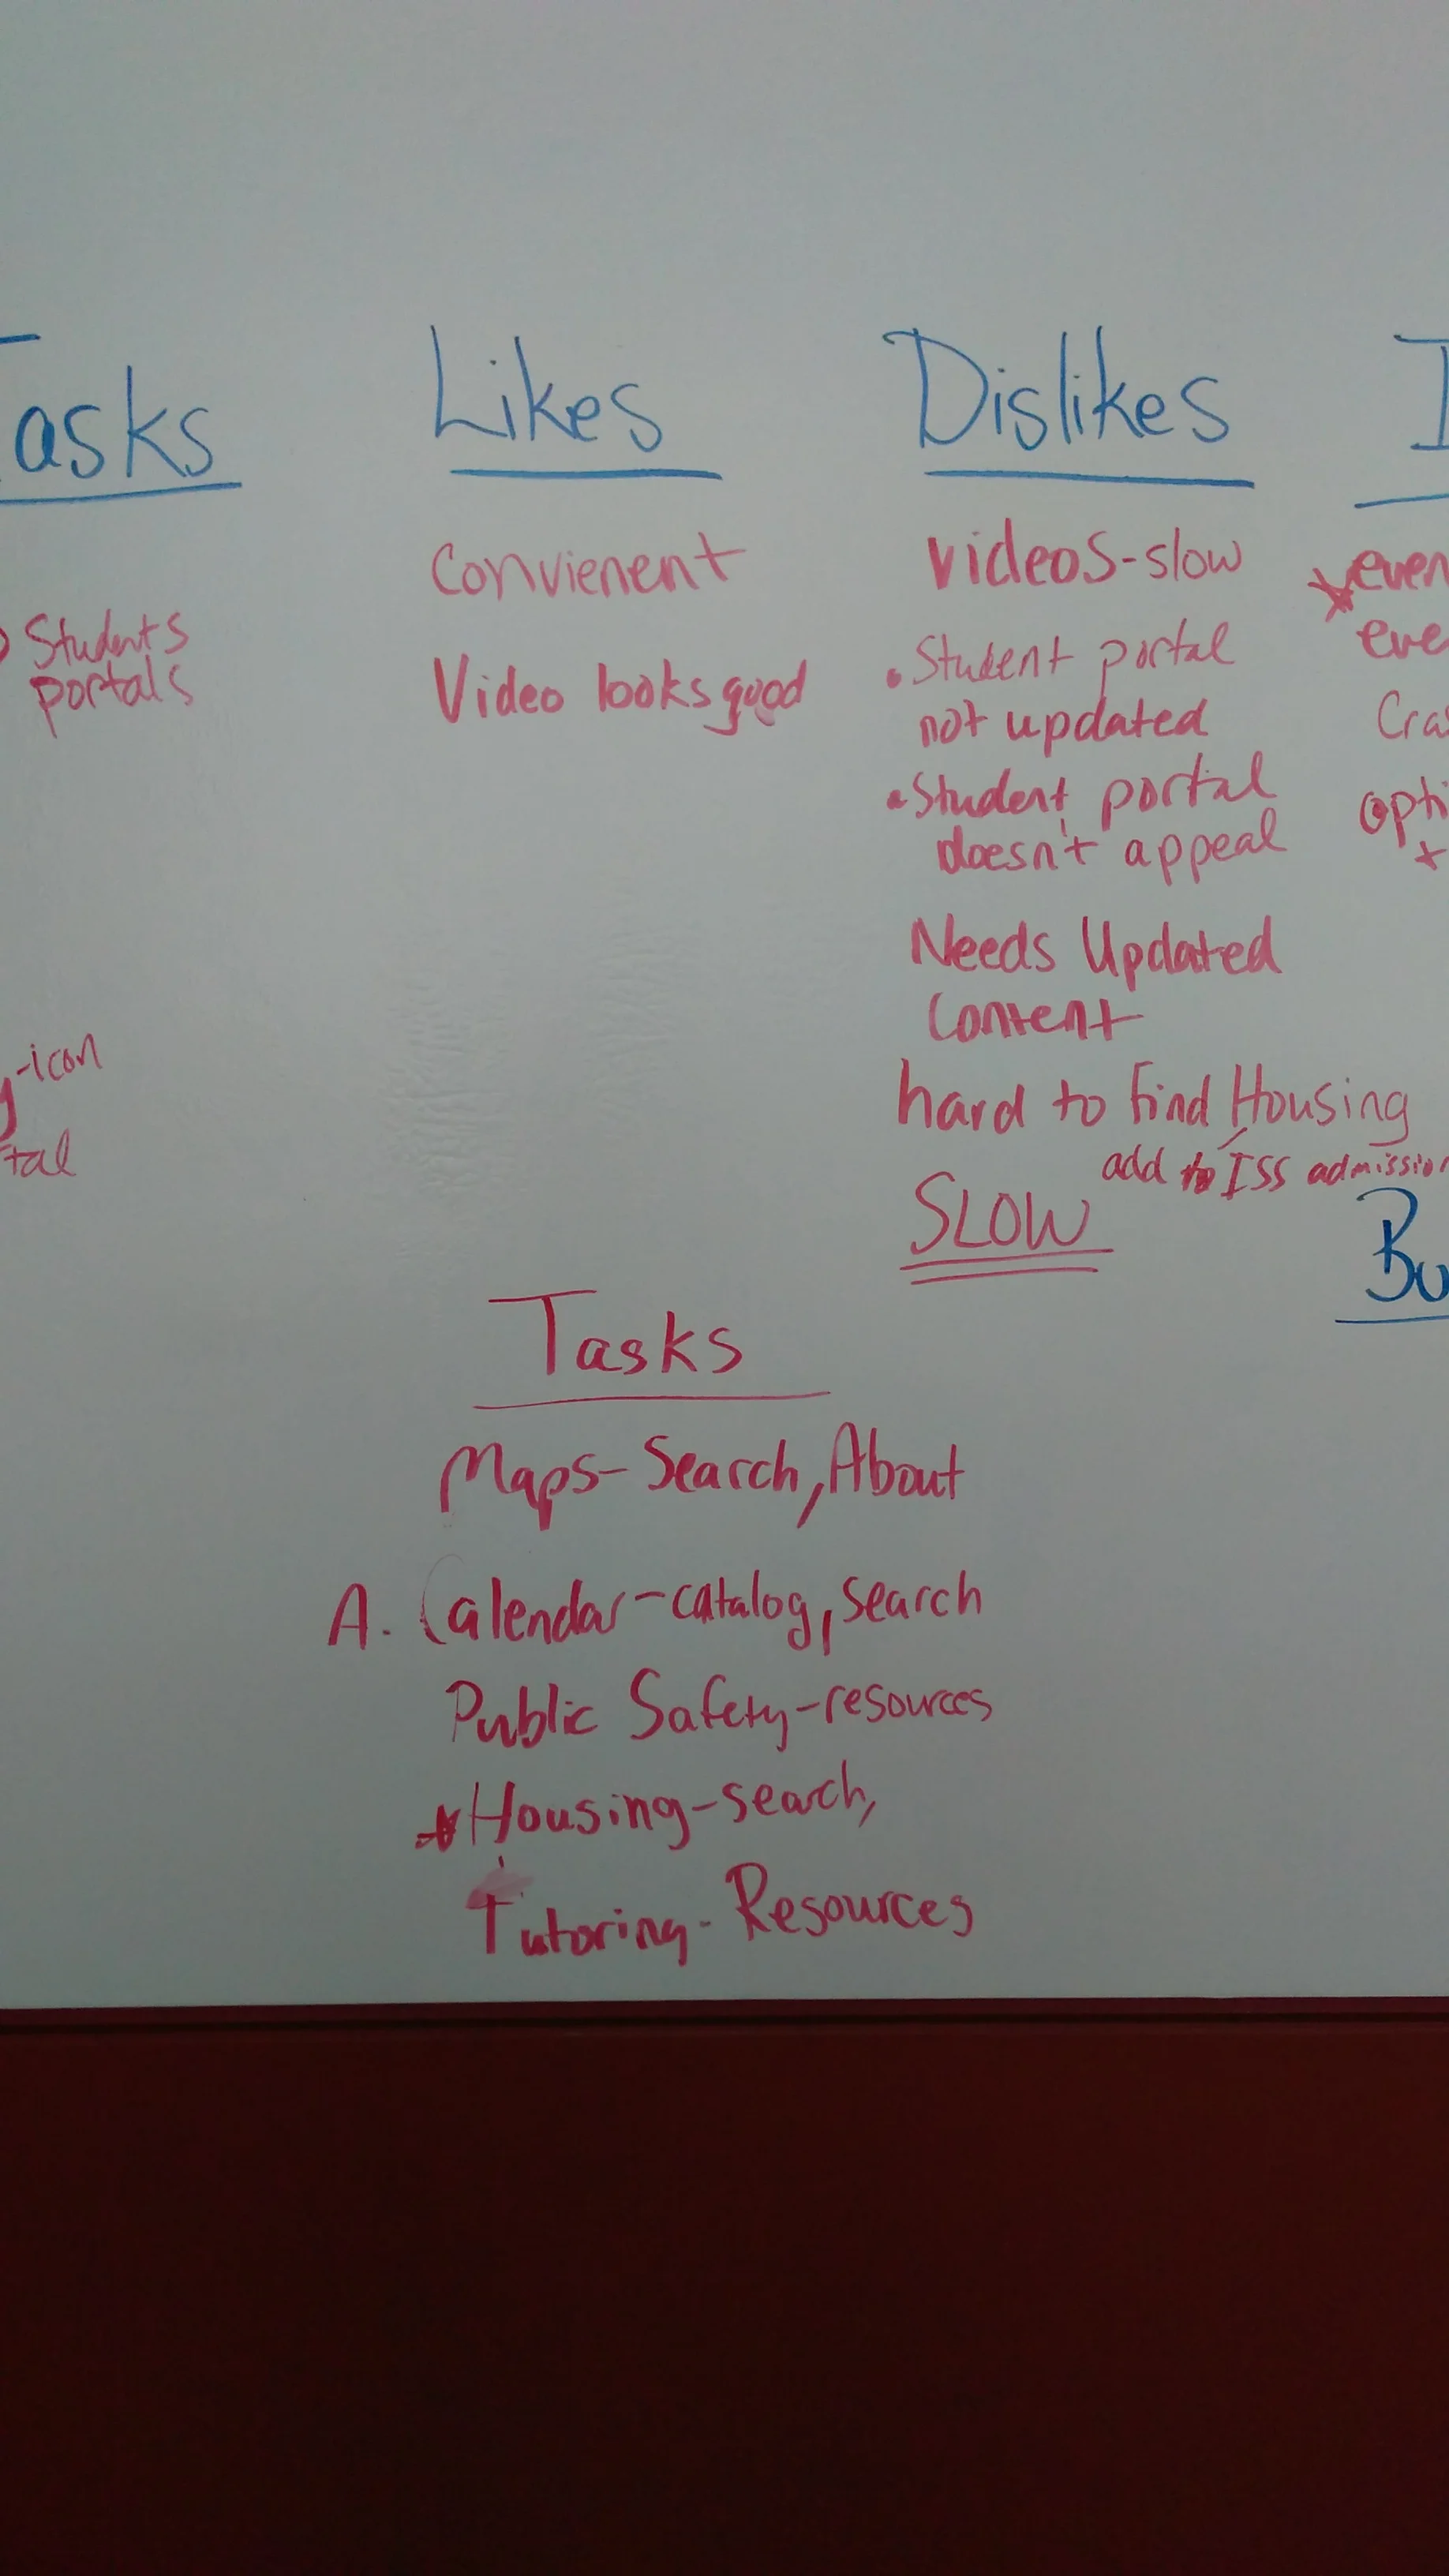 Tasks
Students
portals
-icon
Likes
Convienent
Video looks good
Dislikes
videos-slow
• Student portal
not updated
• Student portal
doesn't appeal
Needs Updated
Content
hard to find Housing
add to ISS admission
SLOW
Tasks
Maps- Search, About
A. Calendar-catalog, search
Public Safety-resources
Housing-search,
Tutoring- Resources